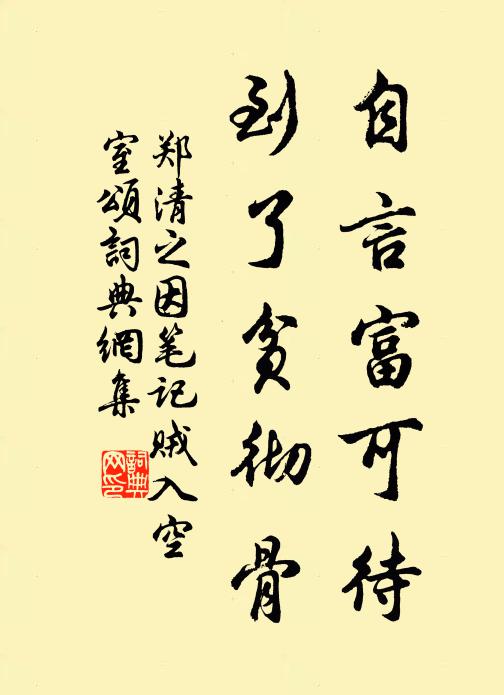 自言富可待
到了贫彻骨
郑清之因笔记贼入空
室颂词典網集
詞典
网印